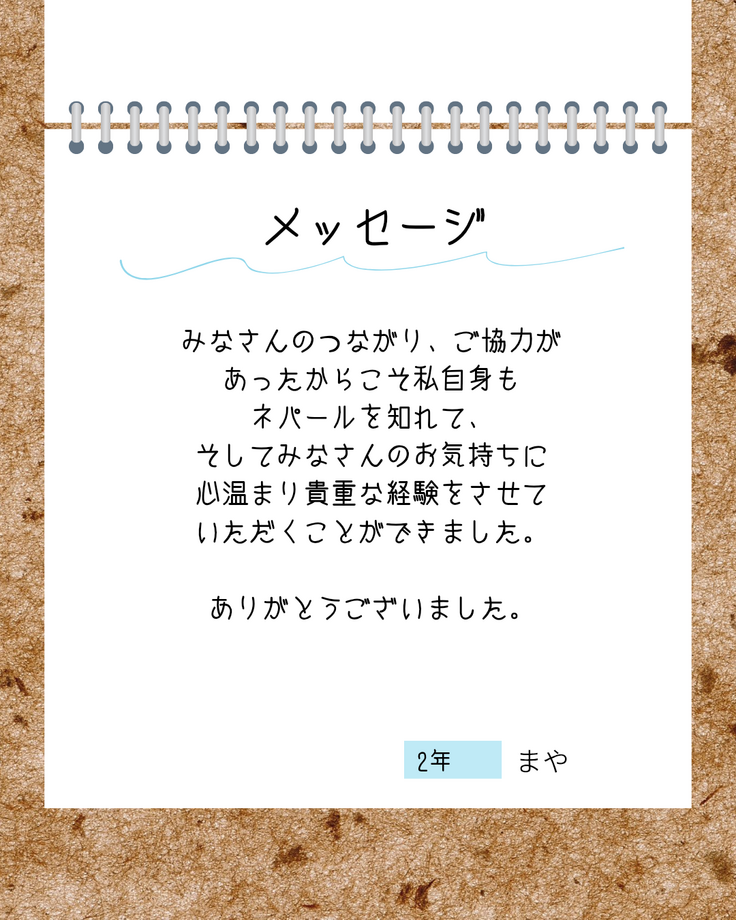 メッセージ
みなさんのつながり、ご協力が
あったからこそ私自身も
ネパールを知れて、
そしてみなさんのお気持ちに
心温まり貴重な経験をさせて
いただくことができました。
ありがとうございました。
2年 まや